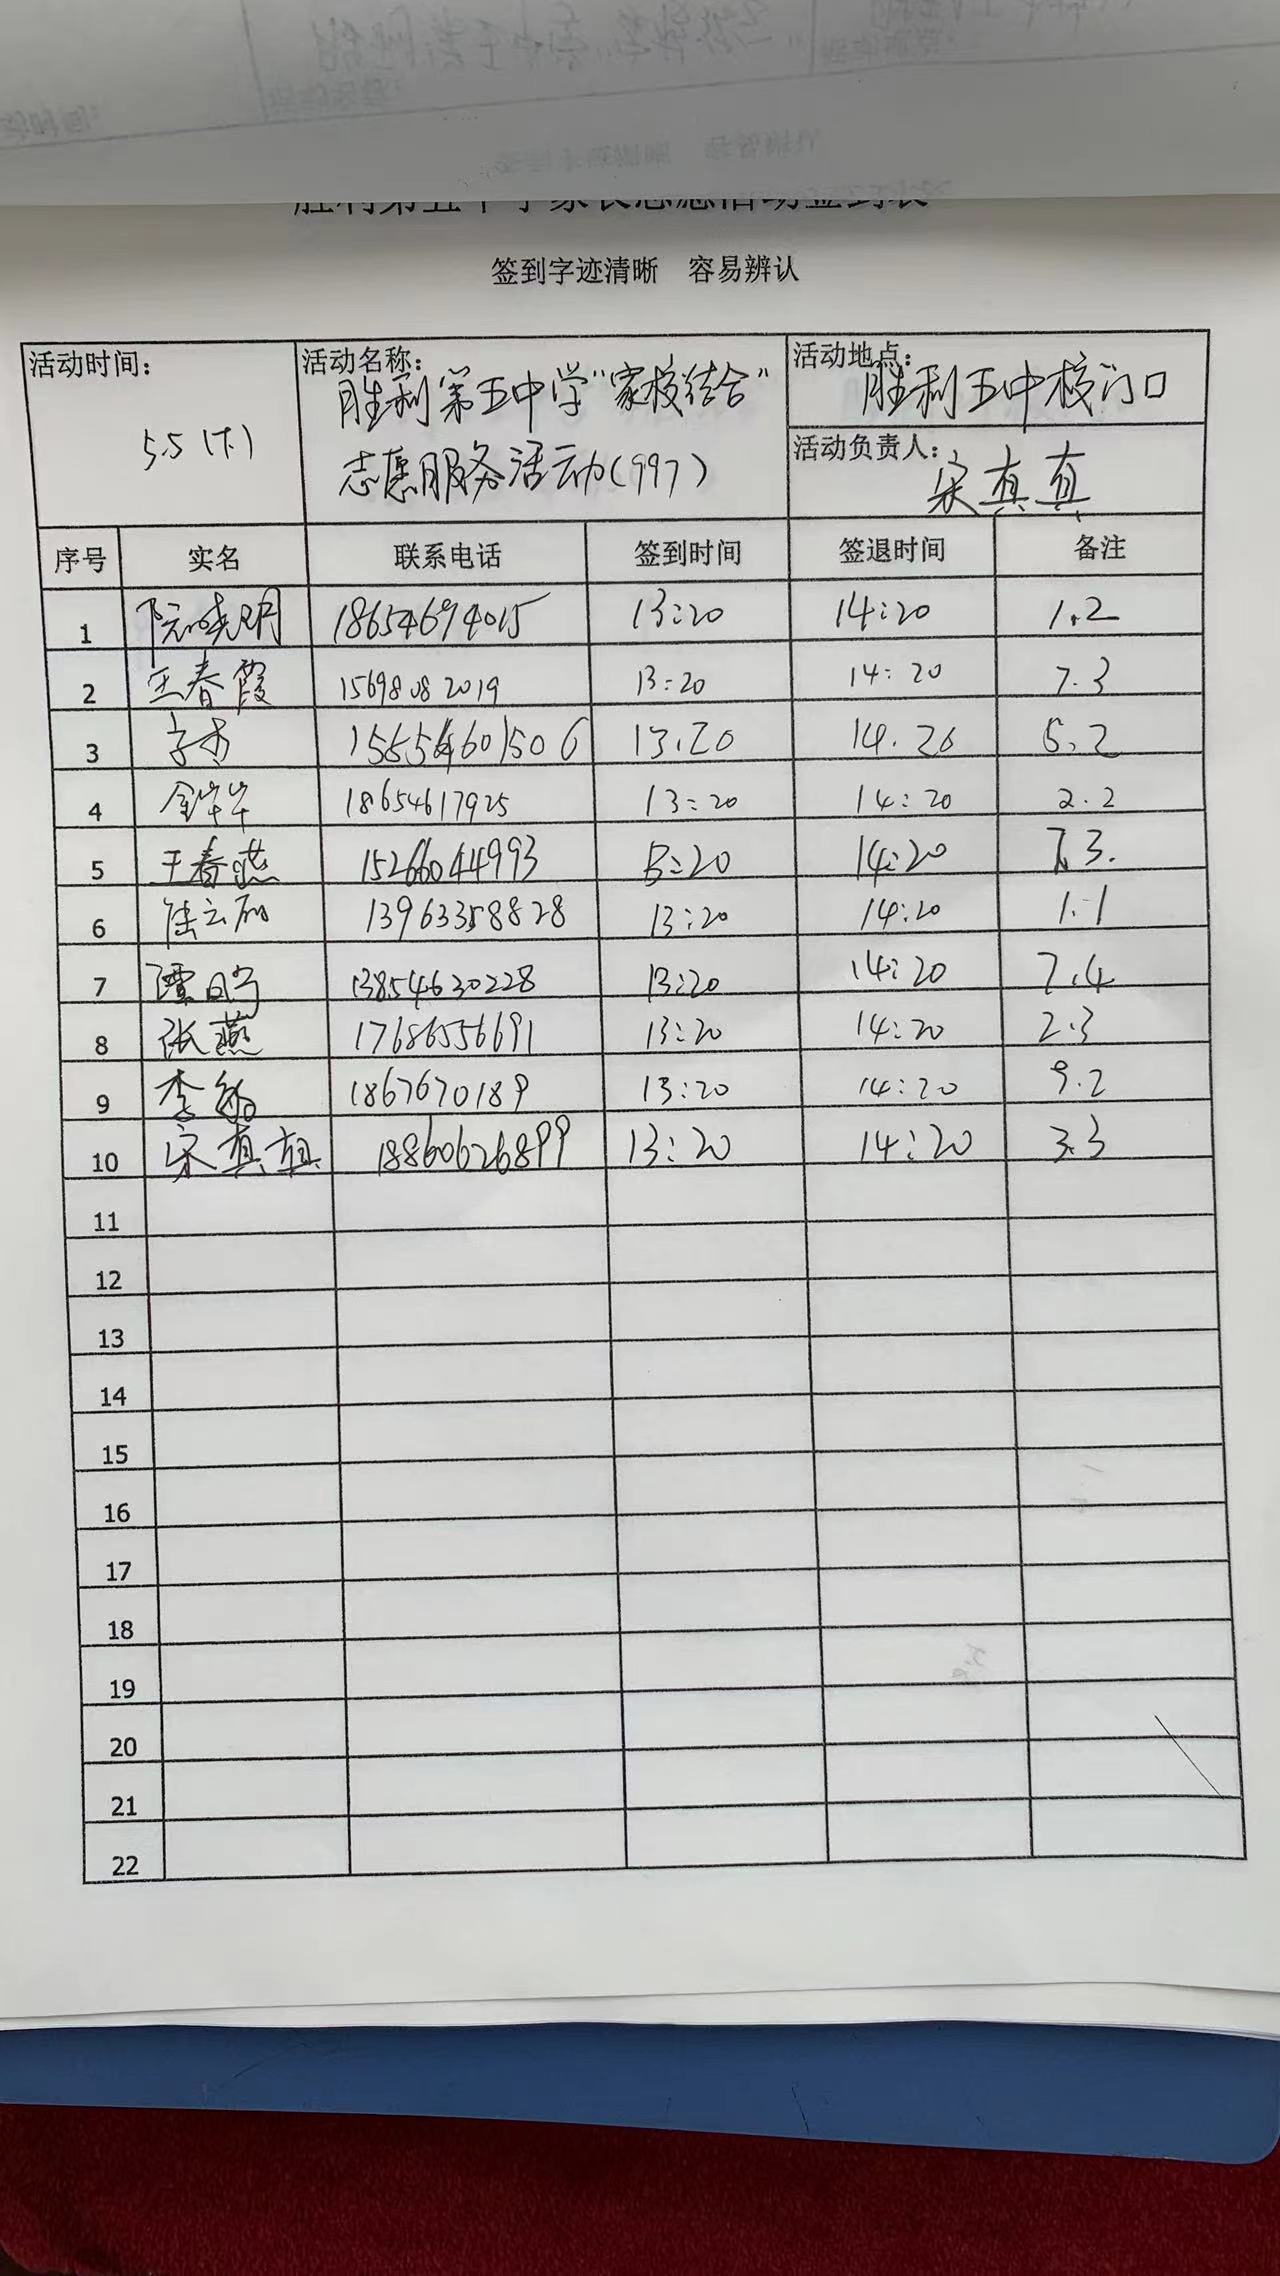 胜利第五中学家长志愿活动签到表
签到字迹清晰 容易辨认
活动时间: 5.5(下)
活动名称: 胜利第五中学"家校结合"
志愿服务活动(997)
活动地点: 胜利五中校门口
活动负责人: 宋真真
序号 实名 联系电话 签到时间 签退时间 备注
1 阮晓明 18654694015 13:20 14:20 1.2
2 王春霞 15698082019 13:20 14:20 7.3
3 13.20 14.20 5.2
4 金华华 18654617925 13:20 14:20 2.2
5 王春燕 15266044993 13:20 14:20 7.3.
6 13963358828 13:20 14:20 1.1
7 13854630228 13:20 14:20 7.4
8 张燕 17686556691 13:20 14:20 2.3
9 李敏 1867670189 13:20 14:20 9.2
10 宋真真 18860626899 13:20 14:20 3.3
11
12
13
14
15
16
17
18
19
20
21
22